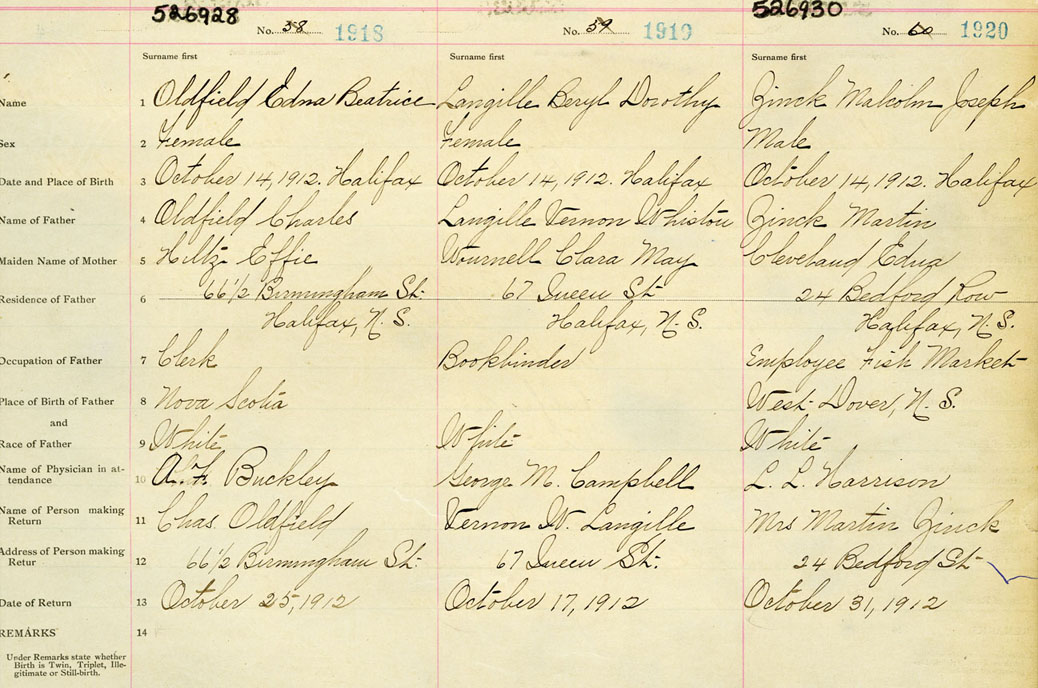 526928 526930
No. 58 1918 No. 59 1919 No. 60 1920
Surname first Surname first Surname first
Name 1 Oldfield Edna Beatrice Langille Beryl Dorothy Zinck Malcolm Joseph
Sex 2 Female Female Male
Date and Place of Birth 3 October 14, 1912. Halifax October 14, 1912. Halifax October 14, 1912. Halifax
Name of Father 4 Oldfield Charles Langille Vernon Whiston Zinck Martin
Maiden Name of Mother 5 Hiltz Effie Wournell Clara May Cleveland Edna
Residence of Father 6 66 1/2 Birmingham St. 67 Queen St 24 Bedford Row
Halifax, N. S. Halifax, N. S. Halifax, N. S.
Occupation of Father 7 Clerk Bookbinder Employee Fish Market
Place of Birth of Father 8 Nova Scotia West Dover, N. S.
and
Race of Father 9 White White White
Name of Physician in at-
tendance 10 A. F. Buckley George M. Campbell L. L. Harrison
Name of Person making
Return 11 Chas. Oldfield Vernon W. Langille Mrs Martin Zinck
Address of Person making
Retur 12 66 1/2 Birmingham St. 67 Queen St. 24 Bedford St
Date of Return 13 October 25, 1912 October 17, 1912 October 31, 1912
REMARKS 14
Under Remarks state whether
Birth is Twin, Triplet, Ille-
gitimate or Still-birth.